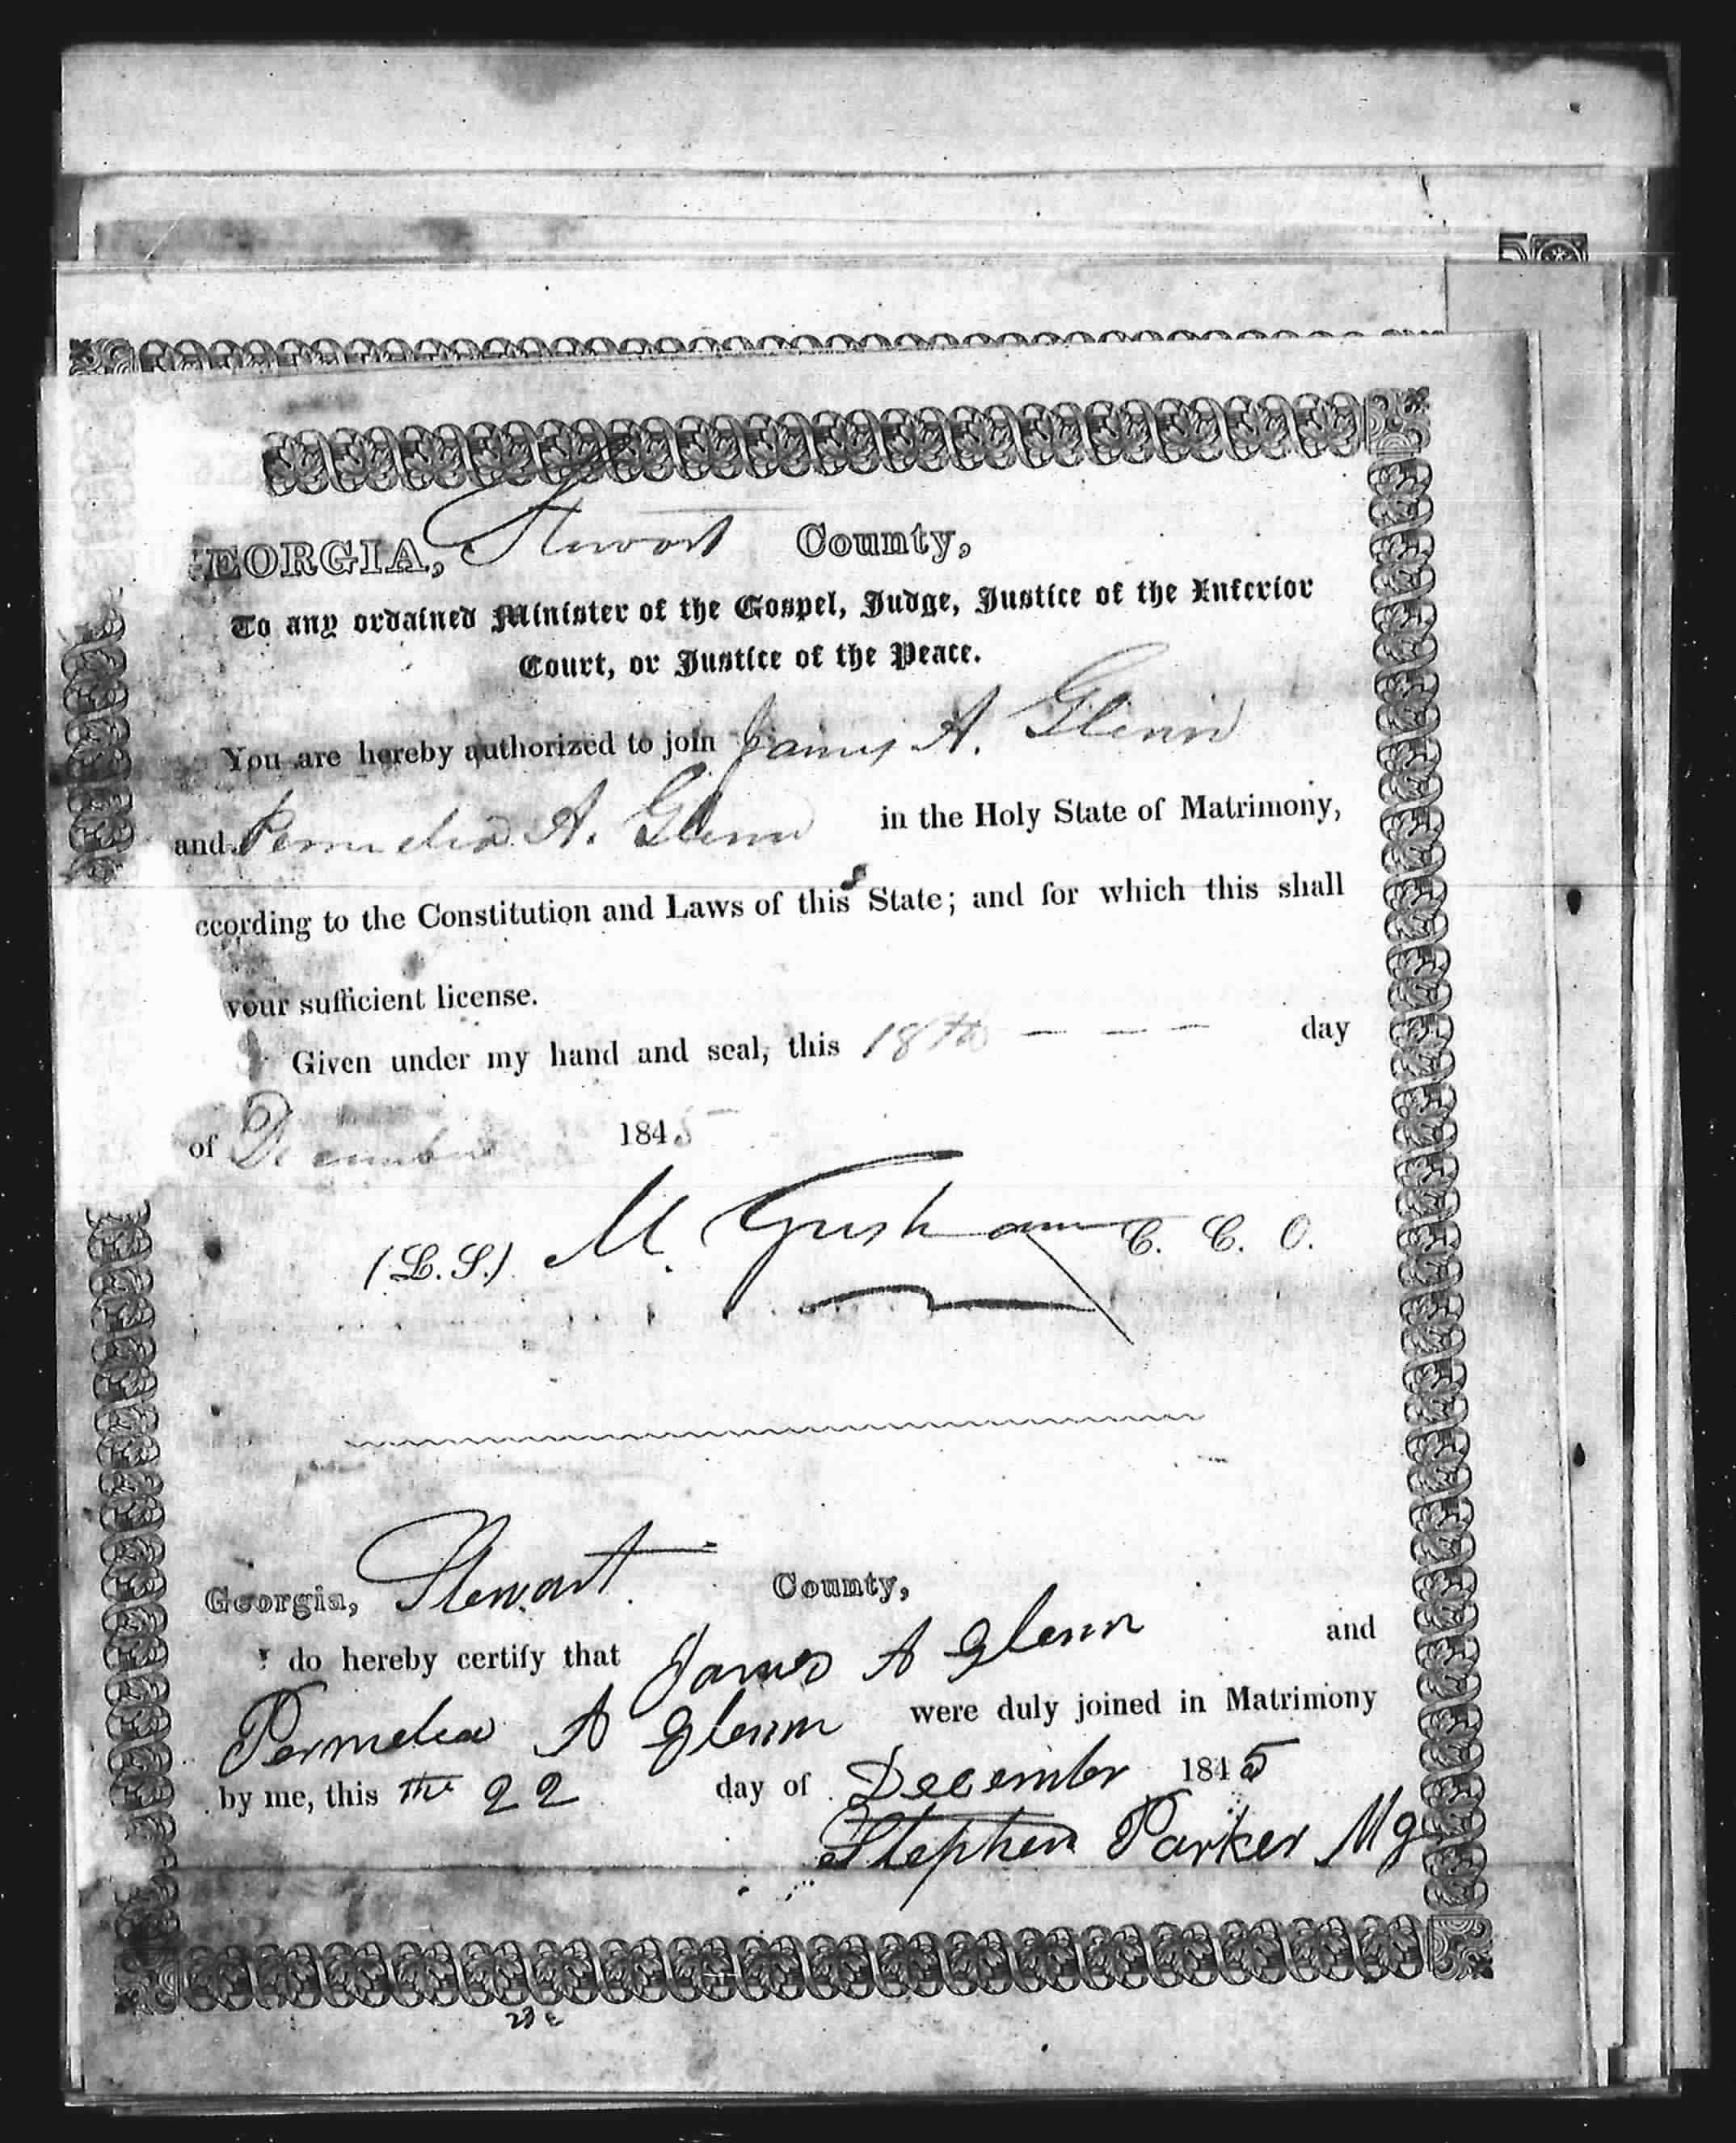 EORGIA, Stewart County,
To any ordained Minister of the Gospel, Judge, Justice of the Inferior
Court, or Justice of the Peace.
You are hereby authorized to join James A. Glenn
and Permelia A. Glenn in the Holy State of Matrimony,
ccording to the Constitution and Laws of this State; and for which this shall
your sufficient license.
Given under my hand and seal, this 18th — — — day
of December 1845
(L. S.) M. Gresham C. C. O.
Georgia, Stewart County,
I do hereby certify that James A Glenn and
Permelia A Glenn were duly joined in Matrimony
by me, this the 22 day of December 1845
Stephen Parker Mg